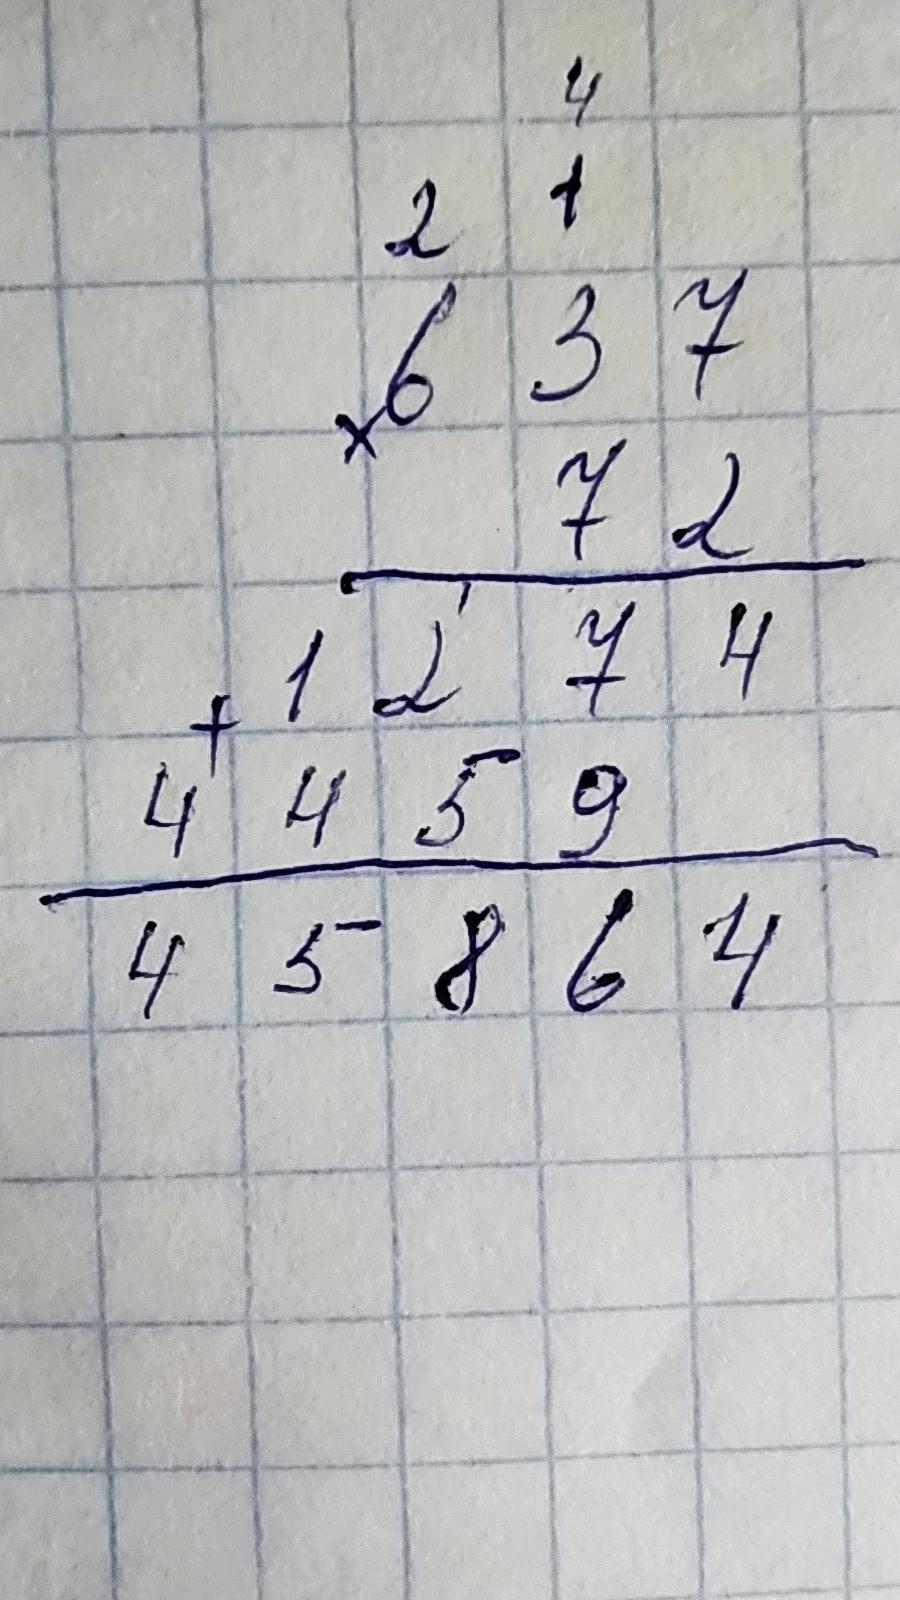 4
2 1
637
×
72
1 2 ' 7 4
+
4459
45864